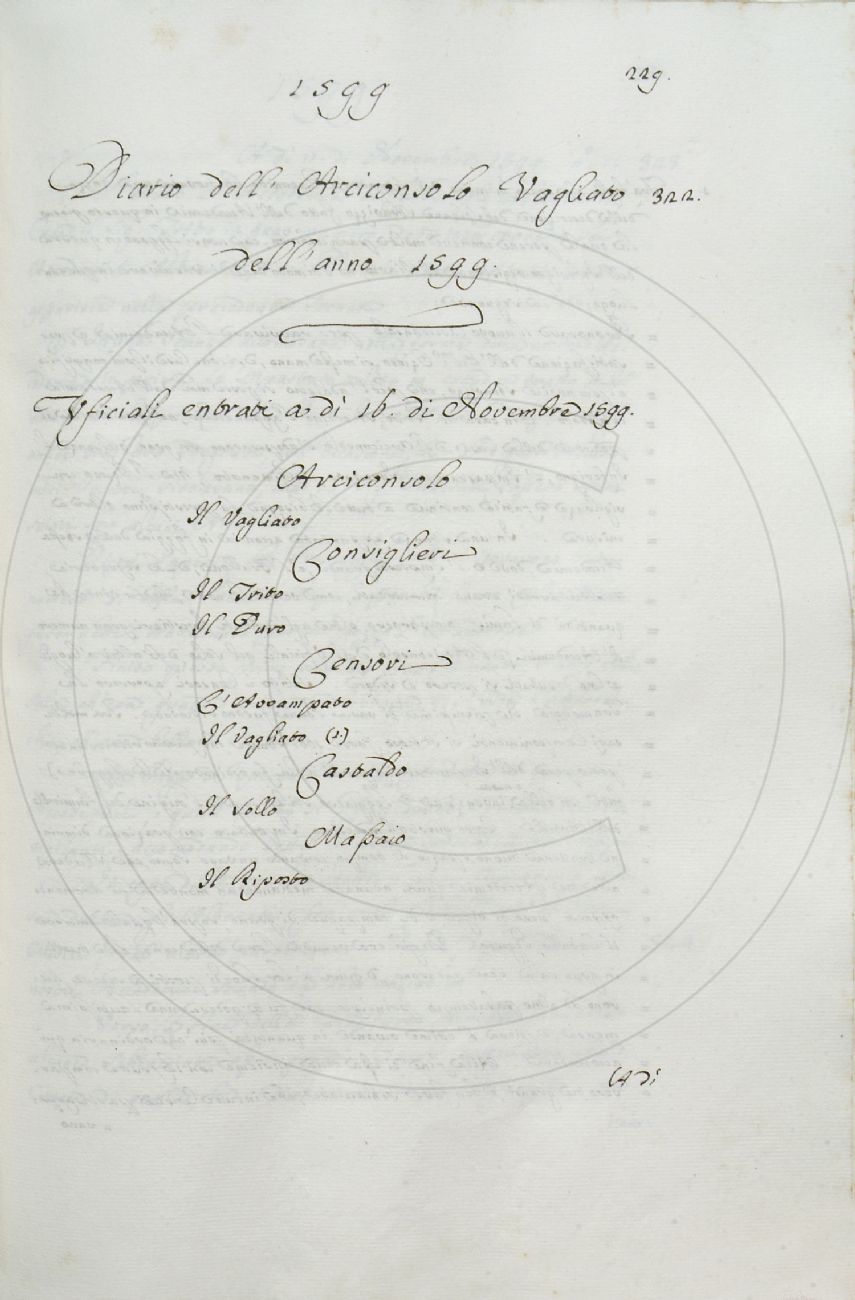 229.
1599
Diario dell' Arciconsolo Vagliato 322.
dell'anno 1599.
Vficiali entrati a dì 16. di Novembre 1599.
Arciconsolo
Il Vagliato
Consiglieri
Il Trito
Il Duro
Censori
L'Avvampato
Il Vagliato (s.)
Castaldo
Il Sollo
Massaio
Il Riposto
(A dì